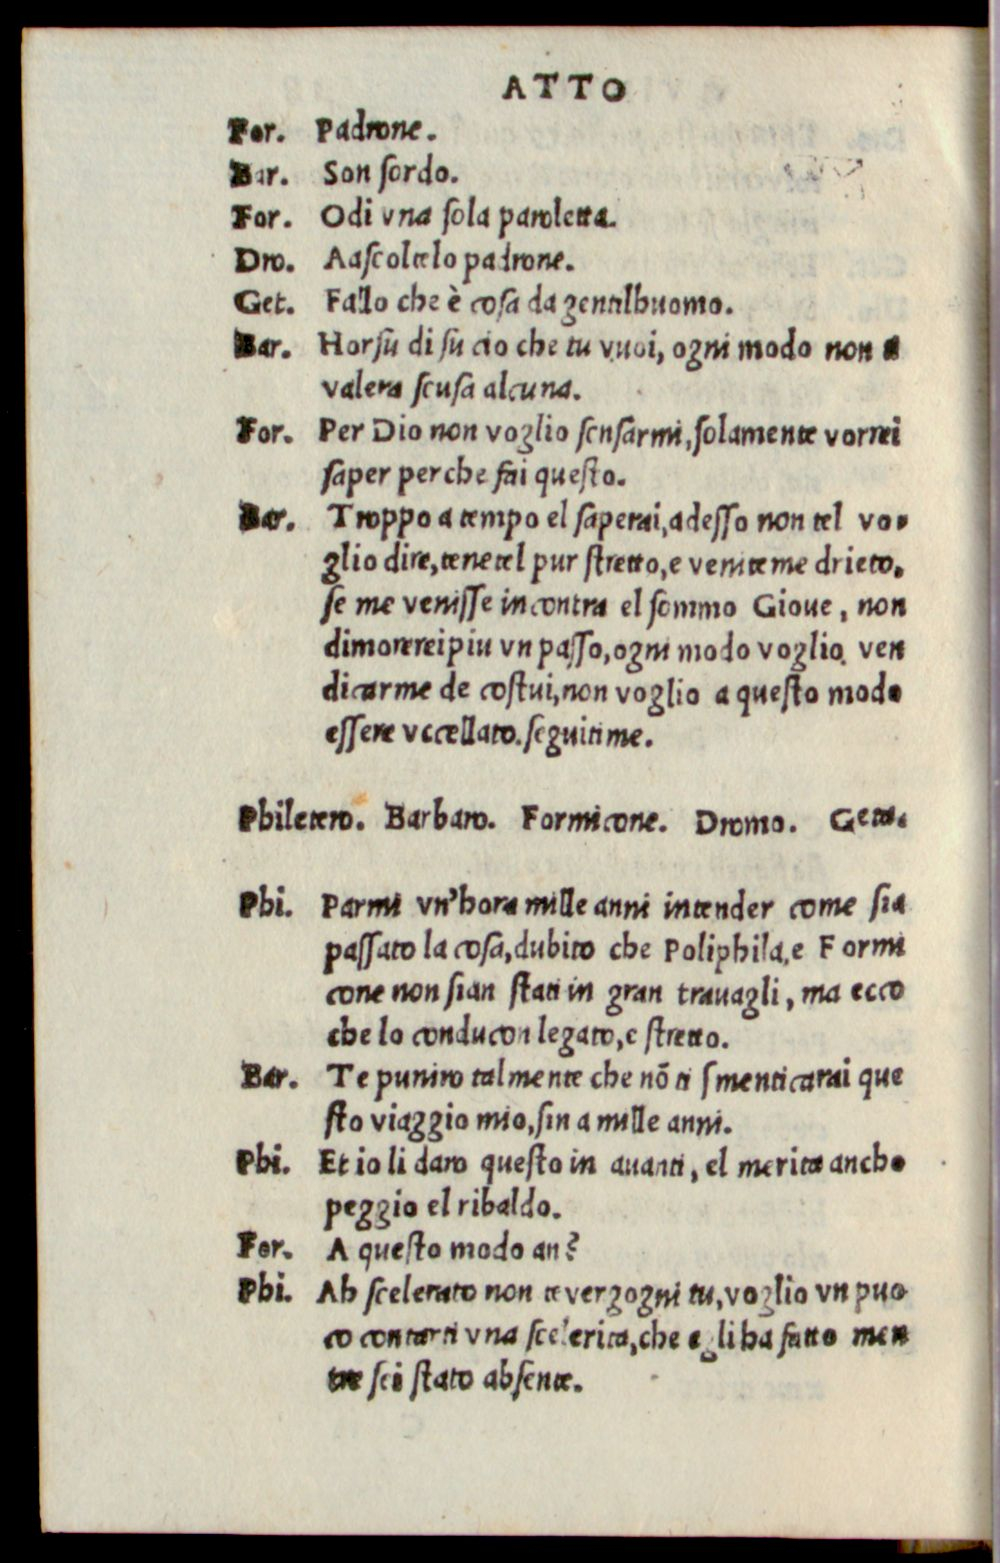 ATTO
For. Padrone.
Bar. Son ſordo.
For. Odi vna ſola paroletta.
Dro. Aaſcoltelo padrone.
Get. Fallo che è coſa da gentilhuomo.
Bar. Horſu di ſu cio che tu vuoi, ogni modo non
valera ſcuſa alcuna.
For. Per Dio non voglio ſcuſarmi, ſolamente vorrei
ſaper perche fai queſto.
Bar. Troppo a tempo el ſaperai, adeſſo non tel vo-
glio dire, tenetel pur ſtretto, e venite me drieto,
ſe me veniſſe incontra el ſommo Gioue, non
dimorerei piu vn paſſo, ogni modo voglio ven
dicarme de coſtui, non voglio a queſto modo
eſſere vccellato. ſeguitime.
Philetero. Barbaro. Formicone. Dromo. Geta.
Phi. Parmi vn'hora mille anni intender come ſia
paſſato la coſa, dubito che Poliphila, e Formi
cone non ſian ſtati in gran trauagli, ma ecco
che lo conducon legato, e ſtretto.
Bar. Te puniro talmente che nõ ti ſmenticarai que
ſto viaggio mio, ſin a mille anni.
Phi. Et io li daro queſto in auanti, el merita anche
peggio el ribaldo.
For. A queſto modo an?
Phi. Ah ſcelerato non te vergogni tu, voglio vn puo
co contarti vna ſcelerita, che egli ha fatto men
tre ſei ſtato abſente.